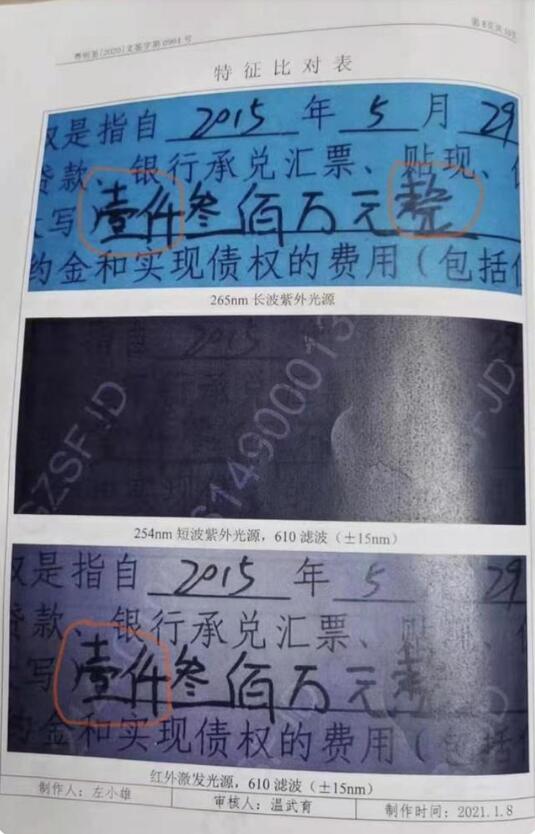 粤明鉴(2020)文鉴字第0961号
特征比对表
权是指自 2015 年 5 月 29
贷款、银行承兑汇票、贴现、
写 壹仟叁佰万元整
约金和实现债权的费用(包括
265nm 长波紫外光源
2015
GZSFJD
6149000013
SFJD
254nm 短波紫外光源,610 滤波(±15nm)
权是指自 2015 年 5 29
贷款、银行承兑汇票、贴
写 壹仟叁佰万元整
约金和实现债权的费用(包括
红外激发光源,610 滤波(±15nm)
制作人:左小雄
审核人:温武育
制作时间:2021.1.8